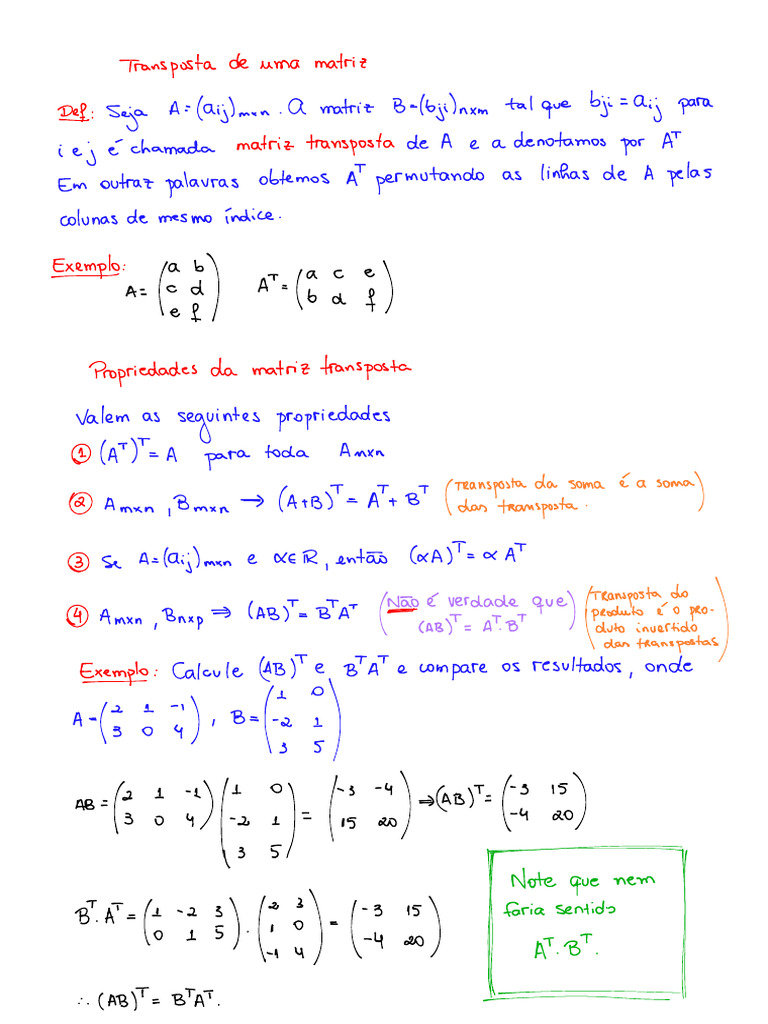 Transposta de uma matriz
Def: Seja A=(aij)m×n. A matriz B=(bji)n×m tal que bji = aij para
i e j é chamada matriz transposta de A e a denotamos por A^T
Em outraz palavras obtemos A^T permutando as linhas de A pelas
colunas de mesmo índice.
Exemplo: A = (a b; c d; e f) A^T = (a c e; b d f)
Propriedades da matriz transposta
Valem as seguintes propriedades
① (A^T)^T = A para toda Am×n
② Am×n, Bm×n → (A+B)^T = A^T + B^T (Transposta da soma é a soma
das transposta.)
③ Se A=(aij)m×n e α∈ℝ, então (αA)^T = α A^T
④ Am×n, Bn×p ⇒ (AB)^T = B^T A^T (Não é verdade que
(AB)^T = A^T.B^T)
(Transposta do
produto é o pro-
duto invertido
das transpostas)
Exemplo: Calcule (AB)^T e B^T A^T e compare os resultados, onde
A = (2 1 -1; 3 0 4), B = (1 0; -2 1; 3 5)
AB = (2 1 -1; 3 0 4)(1 0; -2 1; 3 5) = (-3 -4; 15 20) ⇒ (AB)^T = (-3 15; -4 20)
B^T.A^T = (1 -2 3; 0 1 5).(2 3; 1 0; -1 4) = (-3 15; -4 20)
∴ (AB)^T = B^T A^T.
Note que nem
faria sentido
A^T.B^T.